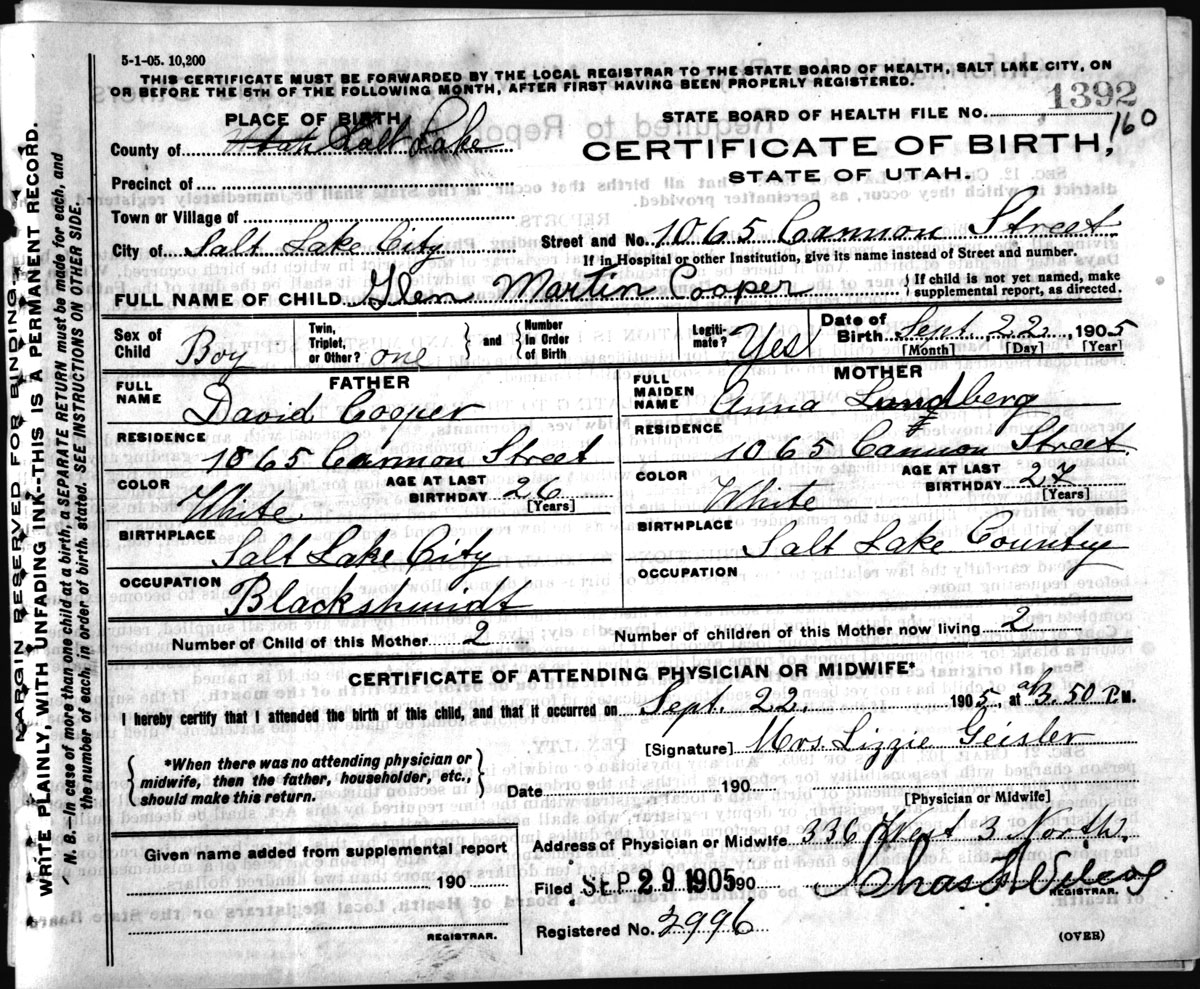 5-1-05. 10,200
THIS CERTIFICATE MUST BE FORWARDED BY THE LOCAL REGISTRAR TO THE STATE BOARD OF HEALTH, SALT LAKE CITY, ON
OR BEFORE THE 5TH OF THE FOLLOWING MONTH, AFTER FIRST HAVING BEEN PROPERLY REGISTERED.
1392
160
PLACE OF BIRTH
STATE BOARD OF HEALTH FILE NO.
County of Utah Salt Lake
CERTIFICATE OF BIRTH,
STATE OF UTAH.
Precinct of
Town or Village of
City of Salt Lake City Street and No. 1065 Cannon Street
If in Hospital or other Institution, give its name instead of Street and number.
FULL NAME OF CHILD Glen Martin Cooper { If child is not yet named, make
supplemental report, as directed.
Sex of Child Boy Twin, Triplet, or Other? one } and { Number In Order of Birth Legiti-mate? Yes Date of Birth Sept. 22, 1905
[Month] [Day] [Year]
FATHER MOTHER
FULL NAME David Cooper FULL MAIDEN NAME Anna Lundberg
RESIDENCE 1065 Cannon Street RESIDENCE 1065 Cannon Street
COLOR White AGE AT LAST BIRTHDAY 26 [Years] COLOR White AGE AT LAST BIRTHDAY 27 [Years]
BIRTHPLACE Salt Lake City BIRTHPLACE Salt Lake County
OCCUPATION Blackshmidt OCCUPATION
Number of Child of this Mother 2 Number of children of this Mother now living 2
CERTIFICATE OF ATTENDING PHYSICIAN OR MIDWIFE*
I hereby certify that I attended the birth of this child, and that it occurred on Sept. 22. 1905, at 3.50 P.M.
[Signature] Mrs. Lizzie Geisler
{ *When there was no attending physician or
midwife, then the father, householder, etc.,
should make this return. }
Date 190
[Physician or Midwife]
Address of Physician or Midwife 336 West 3 North.
Given name added from supplemental report
190
Filed SEP 29 1905 190
REGISTRAR.
Registered No. 2996
REGISTRAR.
(OVER)
MARGIN RESERVED FOR BINDING
WRITE PLAINLY, WITH UNFADING INK--THIS IS A PERMANENT RECORD.
N. B.--In case of more than one child at a birth, a SEPARATE RETURN must be made for each, and
the number of each, in order of birth, stated. SEE INSTRUCTIONS ON OTHER SIDE.